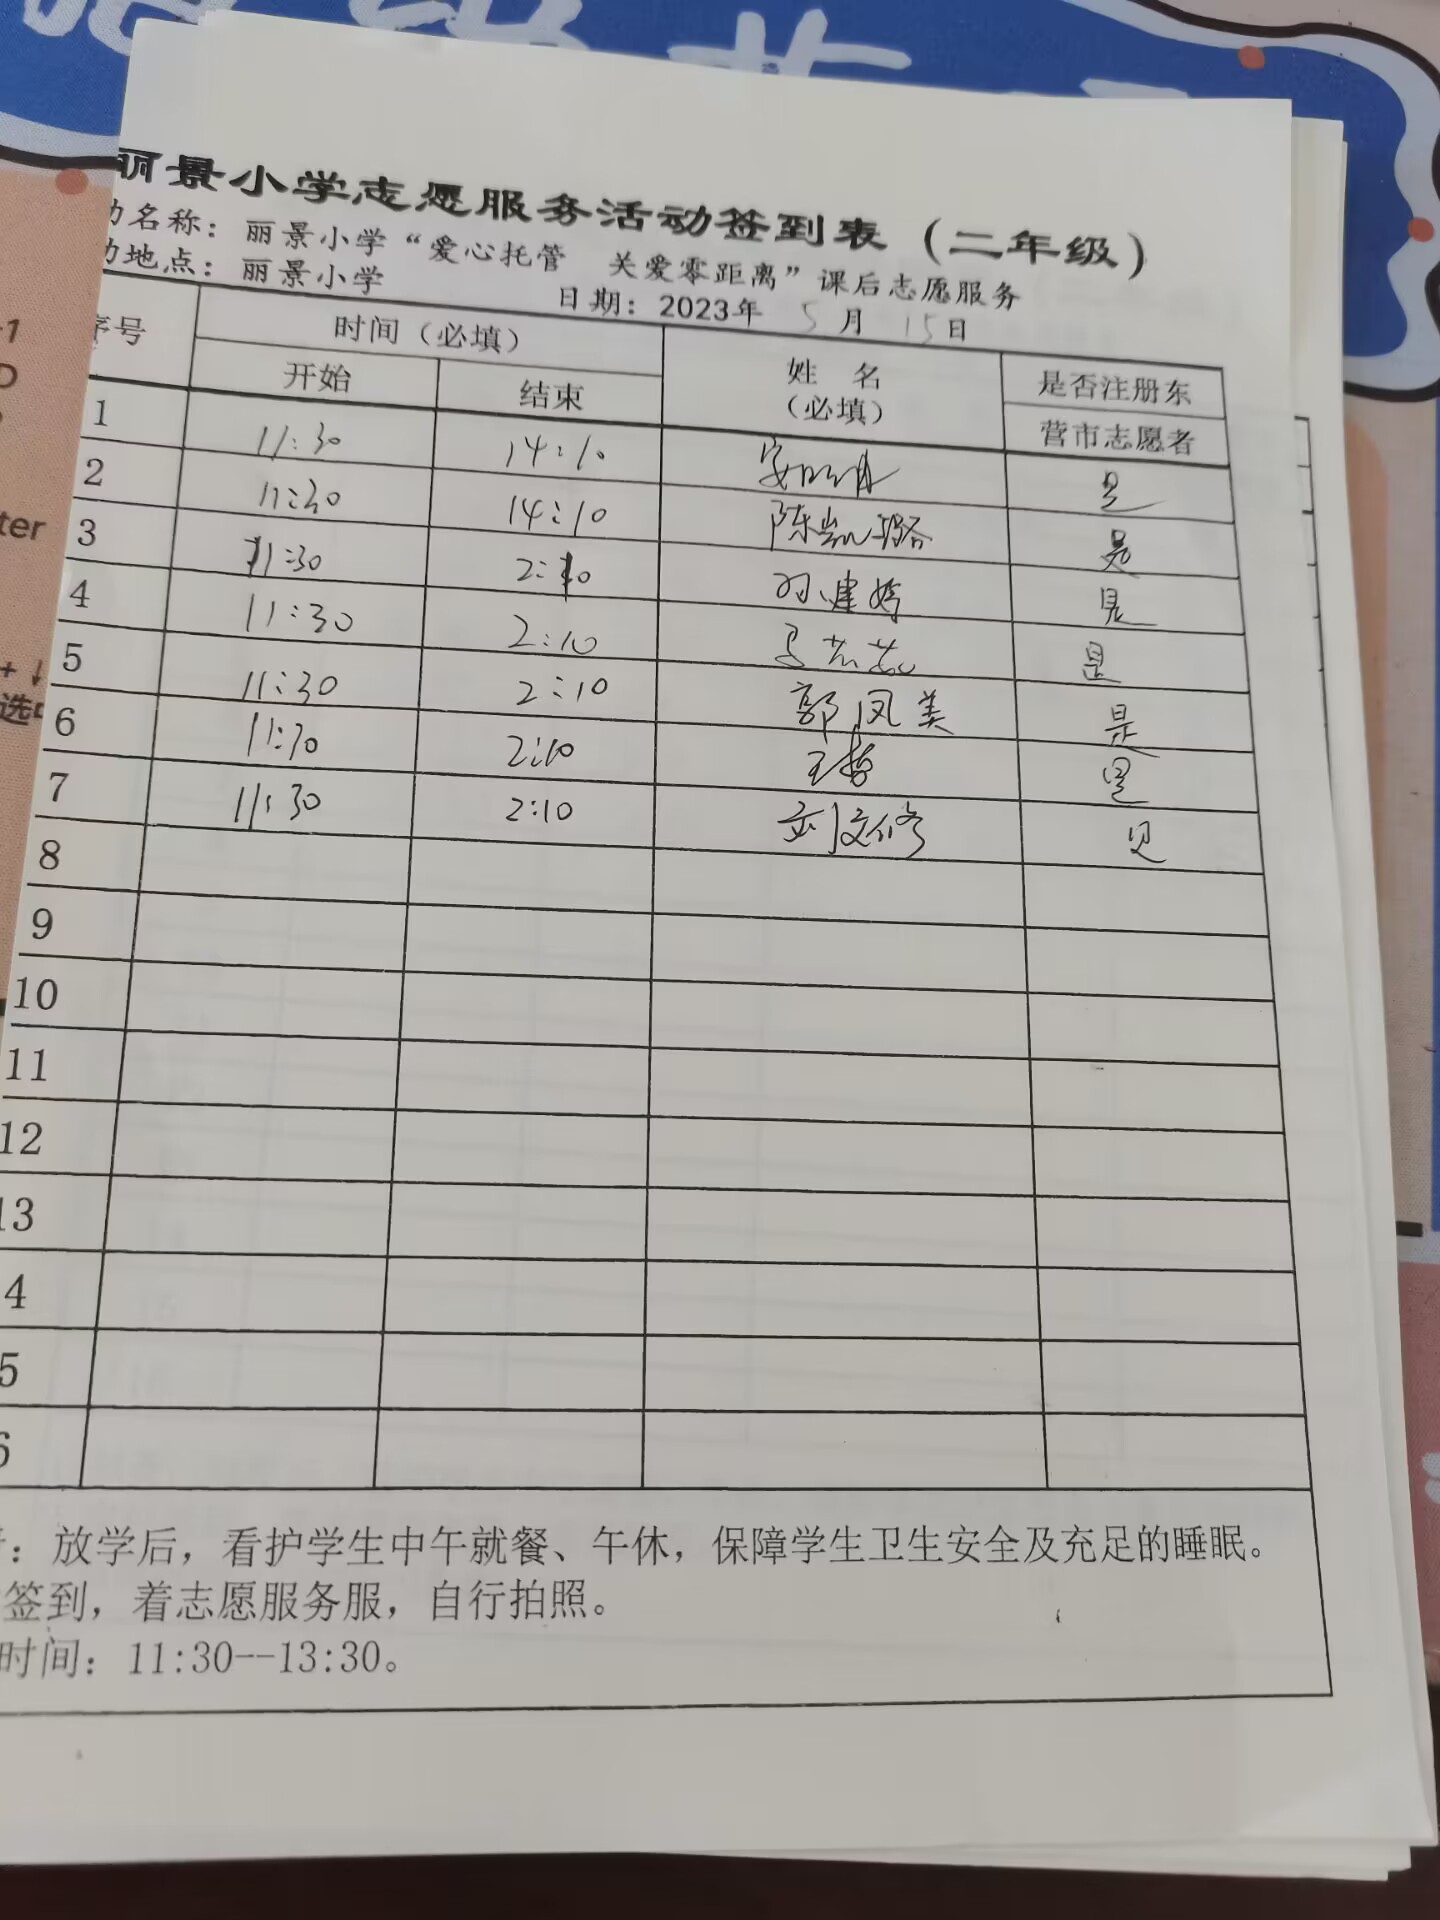 丽景小学志愿服务活动签到表（二年级）
动名称：丽景小学“爱心托管 关爱零距离”课后志愿服务
动地点：丽景小学 日期：2023年 5 月 15日
序号 时间（必填） 姓 名（必填） 是否注册东营市志愿者
开始 结束
1 11:30 14:10 是
2 11:30 14:10 陈凯璐 是
3 11:30 2:10 孙建婷 是
4 11:30 2:10 马 是
5 11:30 2:10 郭凤美 是
6 11:30 2:10 王哲 是
7 11:30 2:10 刘文修 是
8
9
10
11
12
13
4
5
6
：放学后，看护学生中午就餐、午休，保障学生卫生安全及充足的睡眠。
签到，着志愿服务服，自行拍照。
时间：11:30--13:30。
ter
选